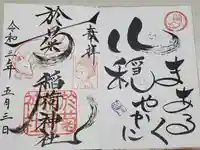 まあるく
心穏やかに
奉拝
於菊稲荷神社
令和三年
五月三日